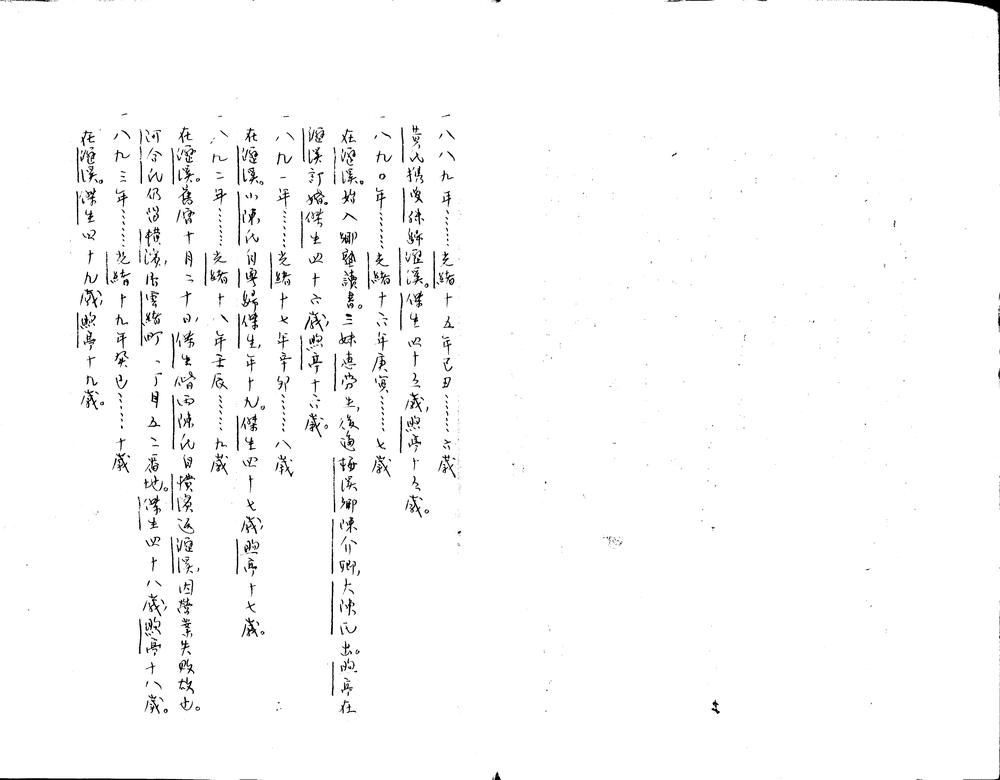 一八八九年⋯⋯光緒十五年己丑⋯⋯六歲
黃氏攜愛孫歸瀝溪。傑生四十五歲，煦亭十五歲。
一八九〇年⋯⋯光緒十六年庚寅⋯⋯七歲
在瀝溪。始入鄉塾讀書。三妹惠芳生，後適梅溪鄉陳介卿，大陳氏出。煦亭在
瀝溪訂婚。傑生四十六歲，煦亭十六歲。
一八九一年⋯⋯光緒十七年辛卯⋯⋯八歲
在瀝溪。小陳氏自粵歸傑生，年十九。傑生四十七歲，煦亭十七歲。
一八九二年⋯⋯光緒十八年壬辰⋯⋯九歲
在瀝溪。舊曆十月二十日，傑生偕兩陳氏自橫濱返瀝溪，因營業失敗故也。
河合氏仍留橫濱，居雲緒町一丁目五二番地。傑生四十八歲，煦亭十八歲。
一八九三年⋯⋯光緒十九年癸巳⋯⋯十歲
在瀝溪。傑生四十九歲，煦亭十九歲。